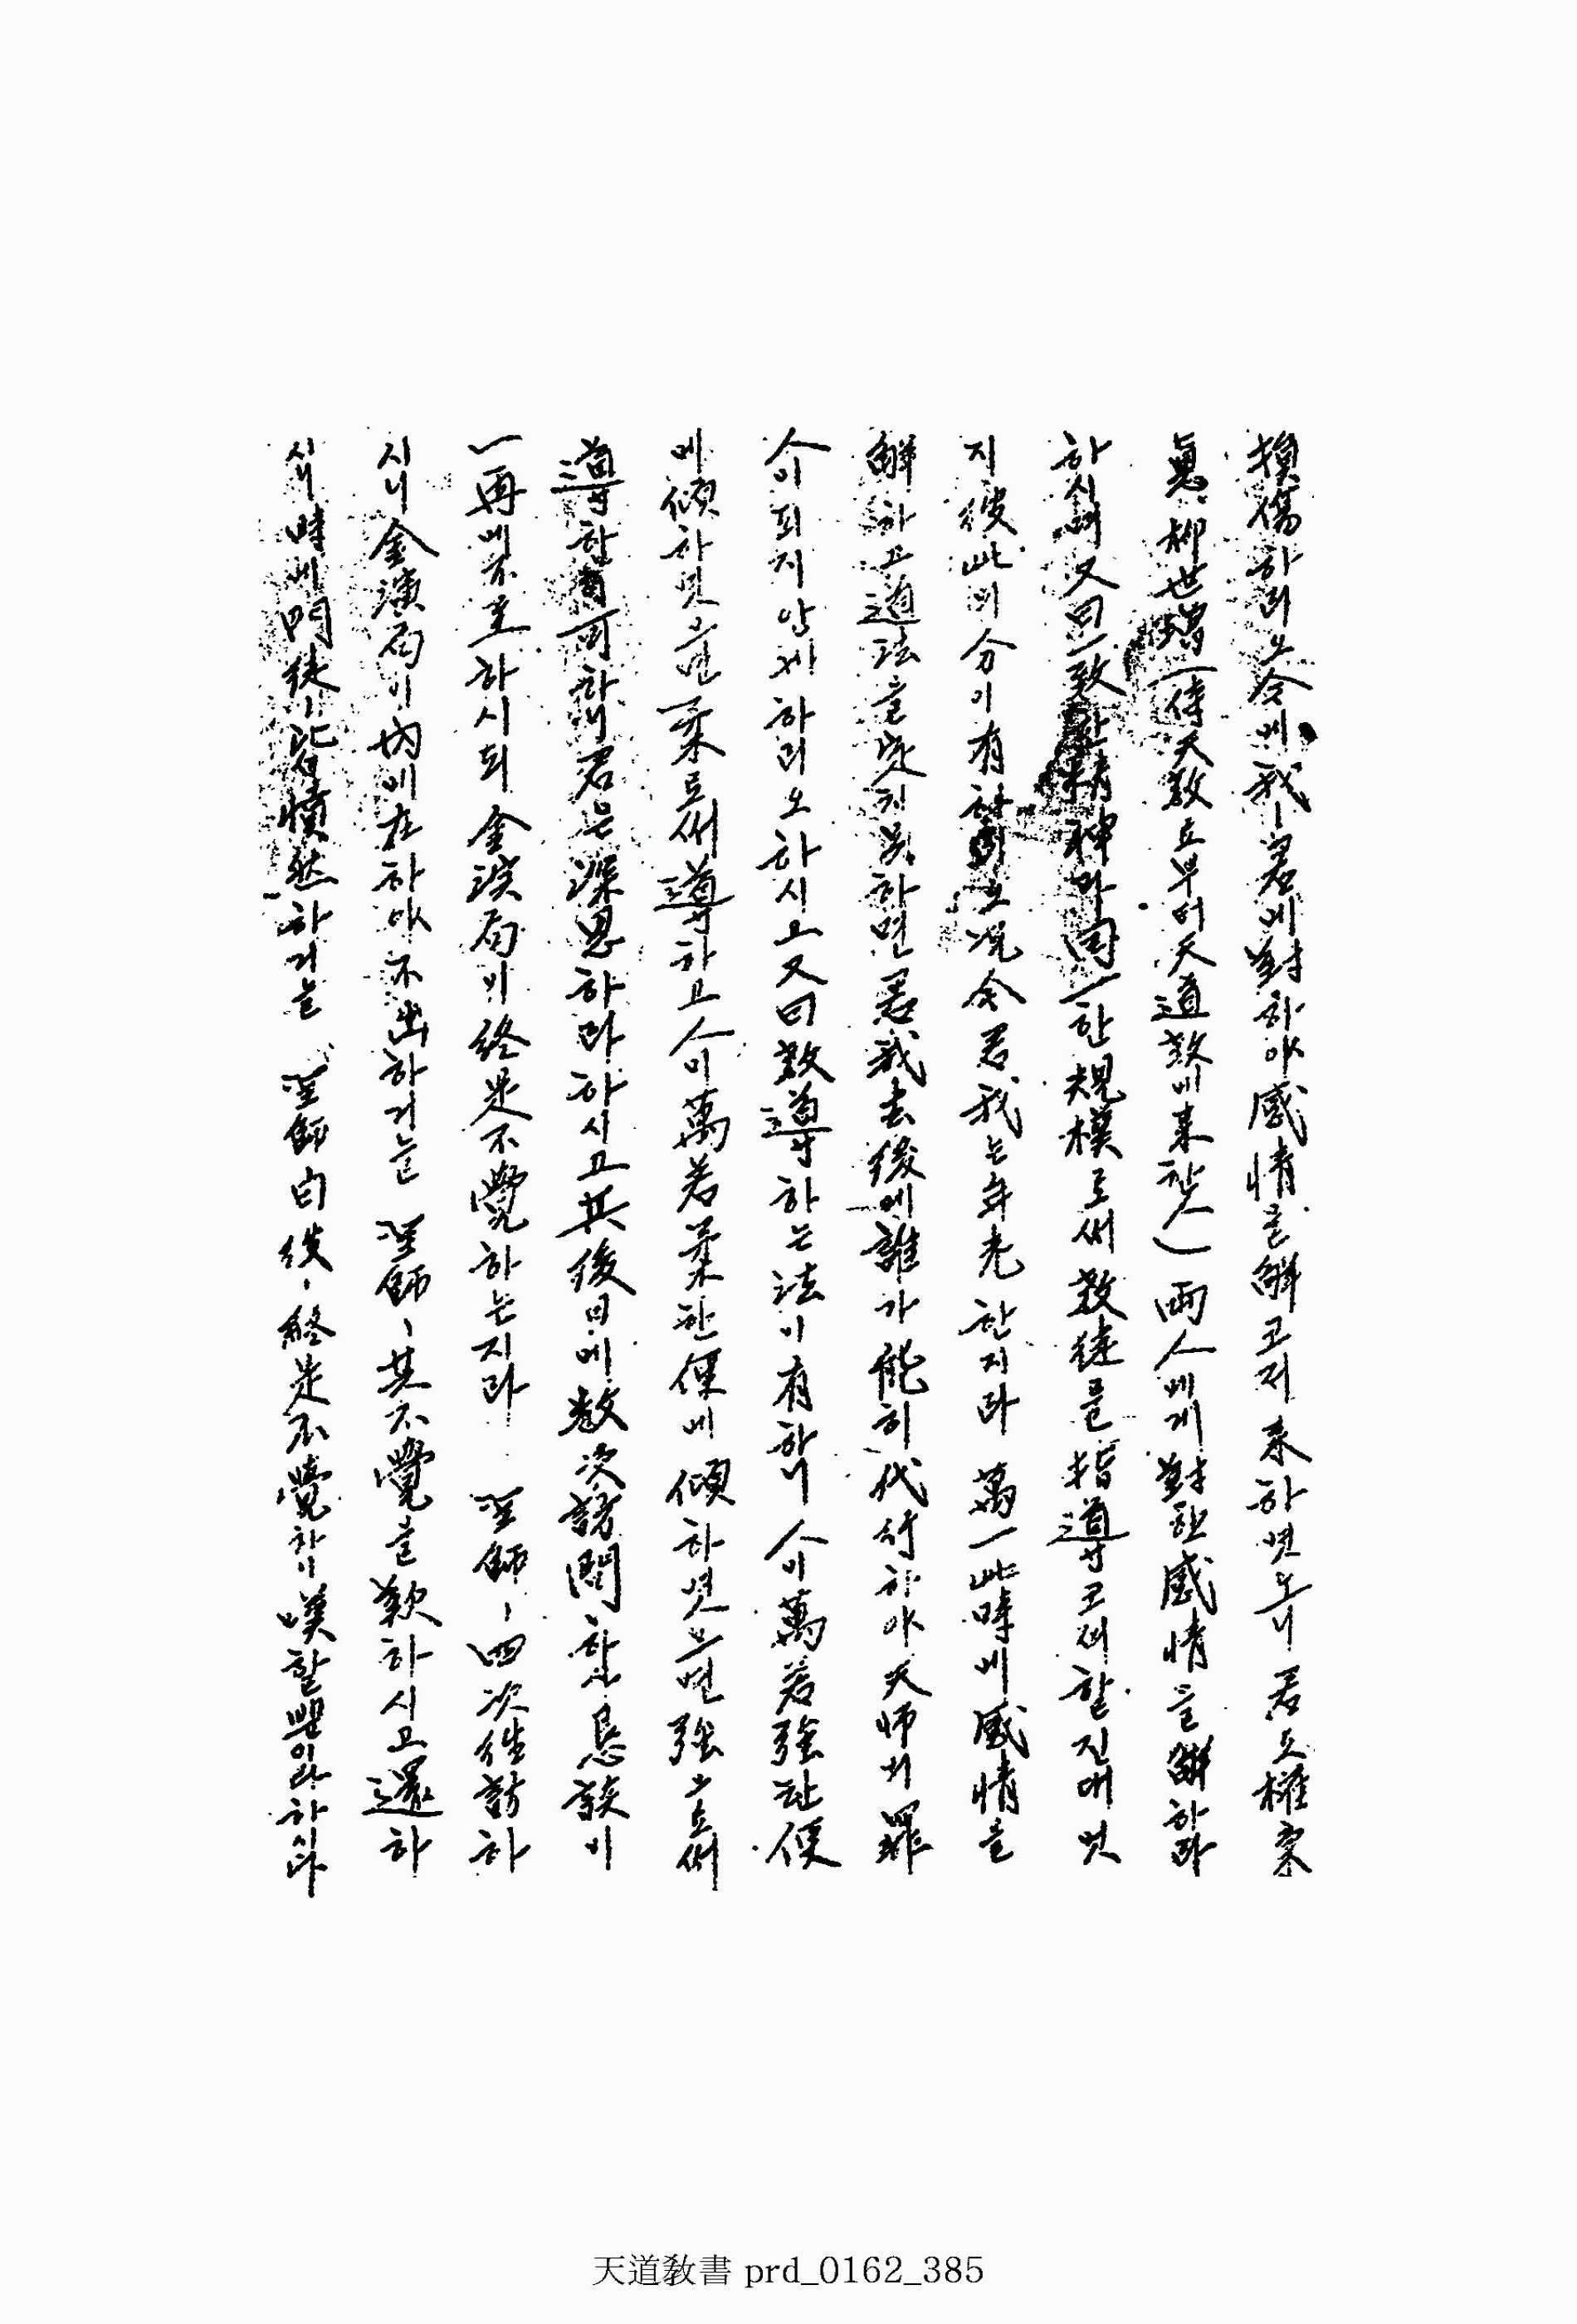 損傷하리오今에我ㅣ君에對하야感情을解고저來하엿노니君도權宗
奐、柳世增(侍天敎로부터天道敎에來한人)兩人에게對한感情을解하라
하시며又曰一致한精神과同一한規模로써敎徒를指導고저할진대엇
지彼此의分이有하리오况今君我는年老한지라萬一此時에感情을
解하고道法을定치못하면君我去後에誰가能히代行하야天師의罪
人이되지안케하리오하시고又曰敎導하는法이有하니人이萬若强한便
에傾하엿으면柔로써導하고人이萬若柔한便에傾하엿으면强으로써
導함이可하니君은深思하라하시고其後日에數次訪問하사忌疾이
一再에不至하시되金演局이終是不覺하는지라 聖師ㅣ四次往訪하
시니金演局이內에在하야不出하거늘 聖師ㅣ其不覺을歎하시고還하
시니時에門徒ㅣ皆憤然하거늘 聖師曰彼ㅣ終是不覺하니嘆할뿐이라하시다
天道敎書 prd_0162_385